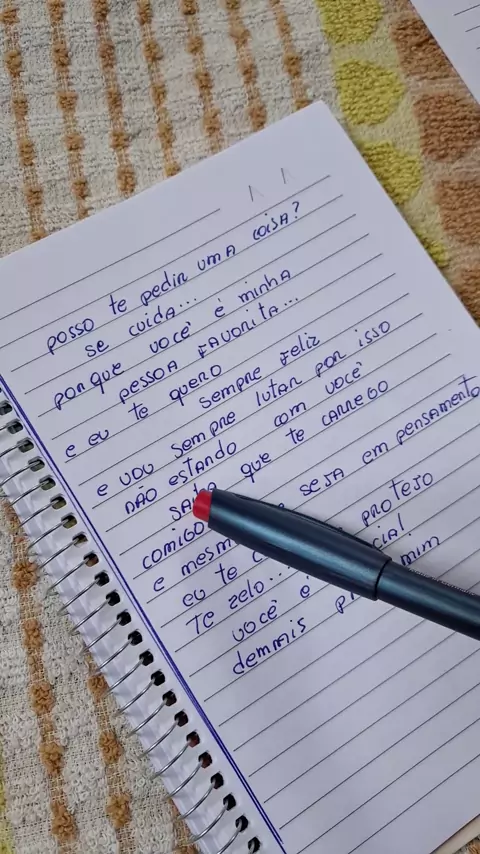 posso te pedir uma coisa?
se cuida...
porque você é minha
pessoa favorita...
e eu te quero
sempre feliz
e vou sempre lutar por isso
não estando com você
que te carrego
comigo
e mesm seja em pensamento
eu te protejo
te zelo... cial
você é mim
demmais p